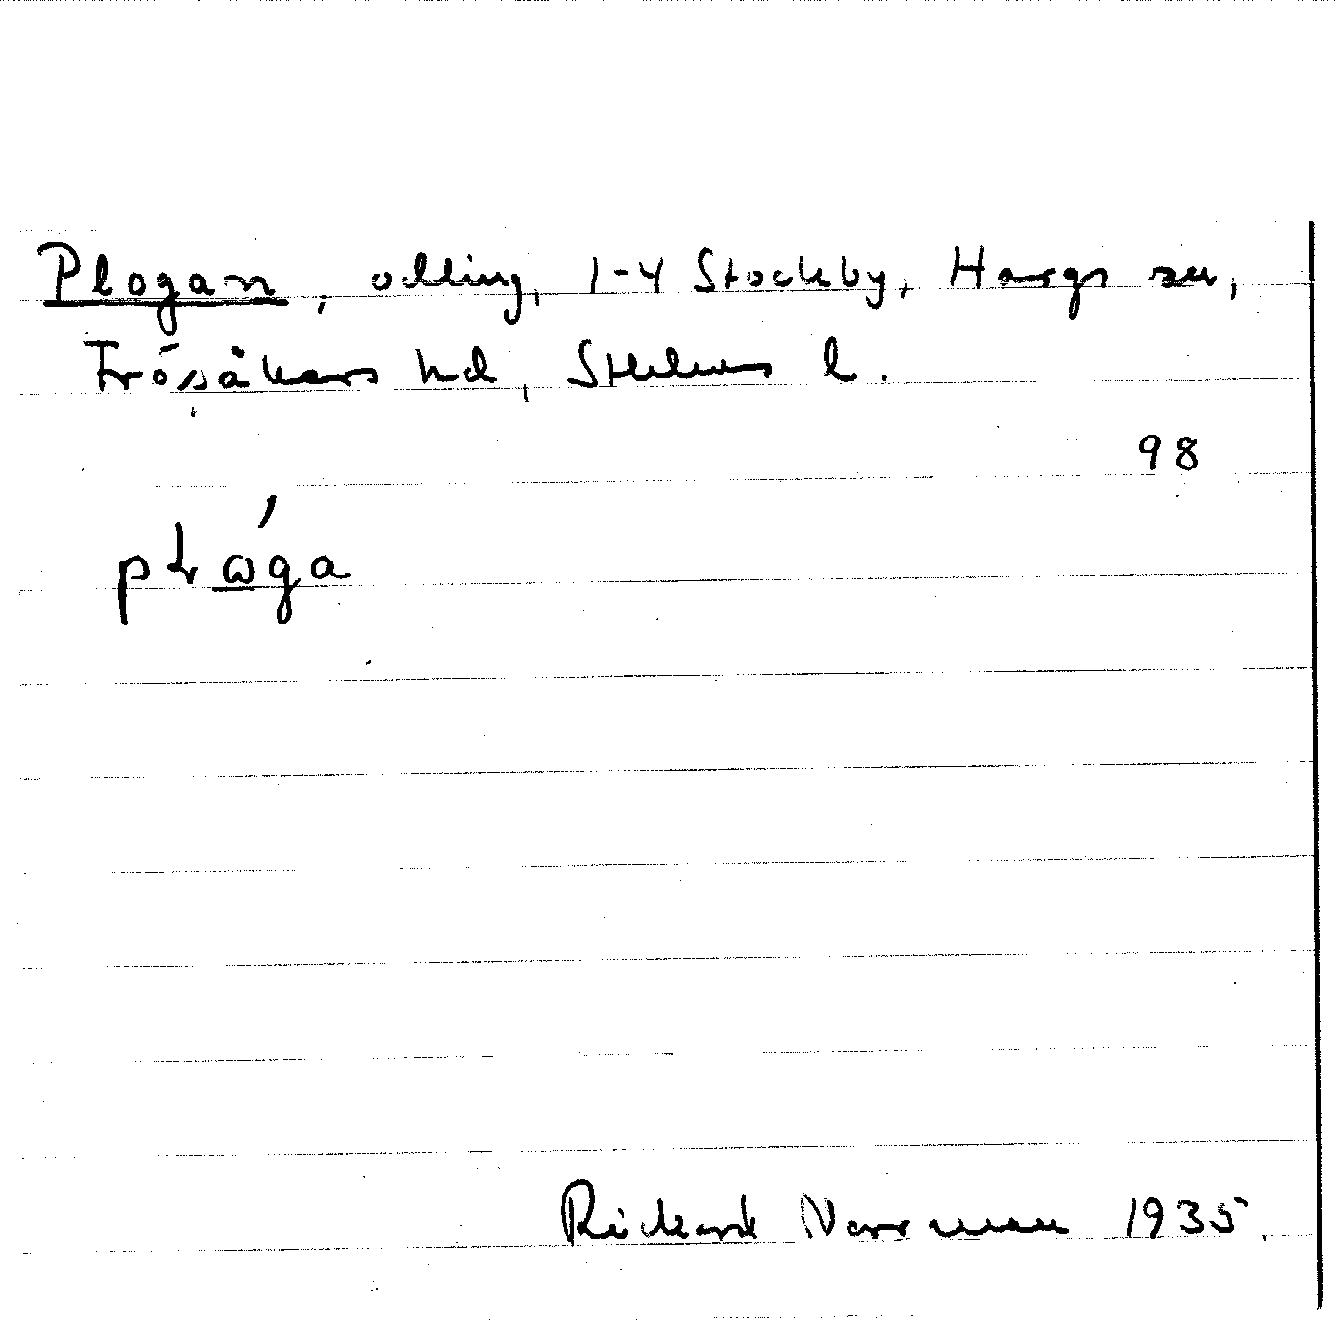 Plogan, odling, 1-4 Stockby, Hargs sn,
Frösåkers hd, Sthlms l.
98
pɫώ̲ga
Rickard Norrman 1935.